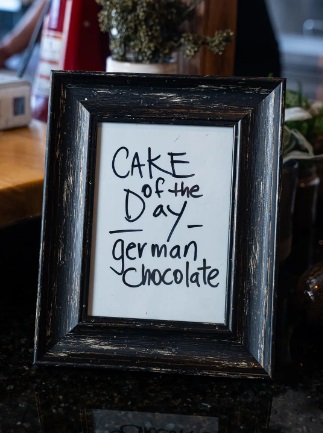 CAKE
of the
Day
german
chocolate